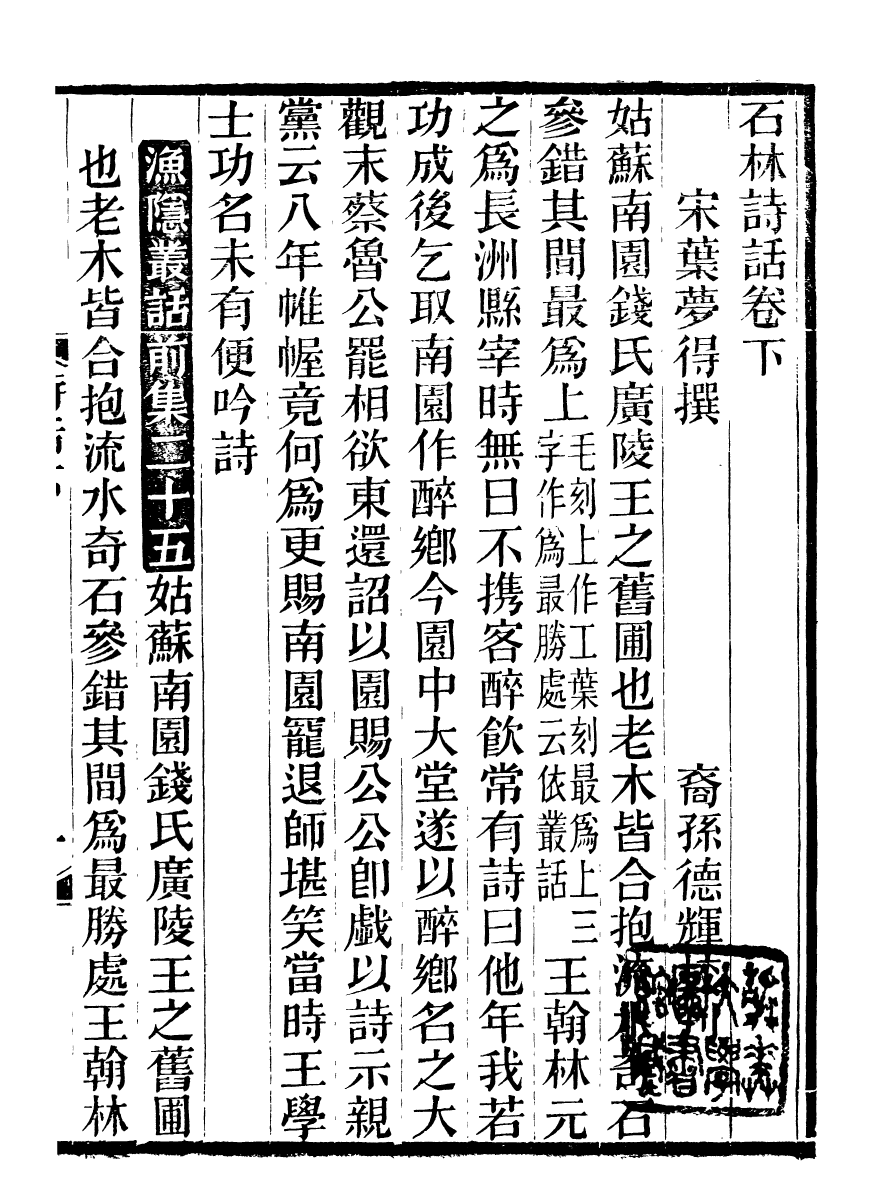 石林詩話卷下
宋葉夢得撰　裔孫德輝
姑蘇南園錢氏廣陵王之舊圃也老木皆合抱流水奇石
參錯其間最爲上毛刻上作工葉刻最爲上三字作爲最勝處云依叢話王翰林元
之爲長洲縣宰時無日不携客醉飲常有詩曰他年我若
功成後乞取南園作醉鄉今園中大堂遂以醉鄉名之大
觀末蔡魯公罷相欲東還詔以園賜公公卽戲以詩示親
黨云八年帷幄竟何爲更賜南園寵退師堪笑當時王學
士功名未有便吟詩
漁隱叢話前集二十五姑蘇南園錢氏廣陵王之舊圃
也老木皆合抱流水奇石參錯其間爲最勝處王翰林